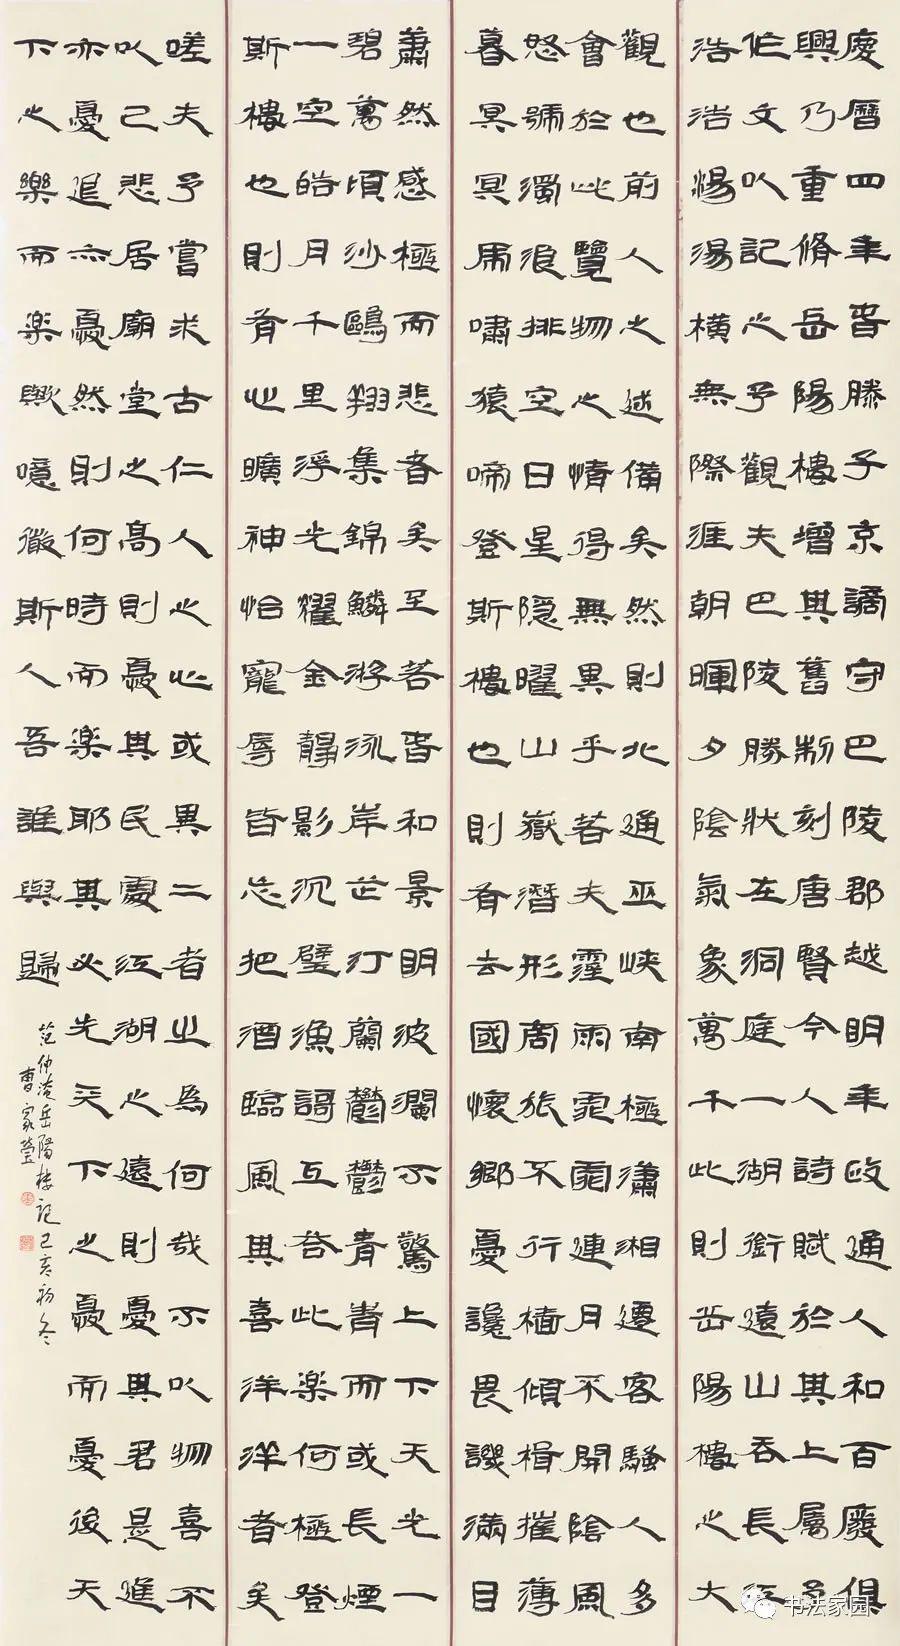 慶曆四年春滕子京謫守巴陵郡越明年政通人和百廢俱
興乃重脩岳陽樓增其舊制刻唐賢今人詩賦於其上屬予
作文以記之予觀夫巴陵勝狀在洞庭一湖銜遠山吞長江
浩浩湯湯橫無際涯朝暉夕陰氣象萬千此則岳陽樓之大
觀也前人之述備矣然則北通巫峽南極瀟湘遷客騷人多
會於此覽物之情得無異乎若夫霪雨霏霏連月不開陰風
怒號濁浪排空日星隱曜山嶽潛形商旅不行檣傾楫摧薄
暮冥冥虎嘯猿啼登斯樓也則有去國懷鄉憂讒畏譏滿目
蕭然感極而悲者矣至若春和景明波瀾不驚上下天光一
碧萬頃沙鷗翔集錦鱗游泳岸芷汀蘭鬱鬱青青而或長煙
一空皓月千里浮光耀金靜影沉璧漁謌互答此樂何極登
斯樓也則有心曠神怡寵辱皆忘把酒臨風其喜洋洋者矣
嗟夫予嘗求古仁人之心或異二者之為何哉不以物喜不
以己悲居廟堂之高則憂其民處江湖之遠則憂其君是進
亦憂退亦憂然則何時而樂耶其必先天下之憂而憂後天
下之樂而樂歟噫微斯人吾誰與歸
范仲淹岳陽樓記己亥初冬
曹家瑩
书法家园